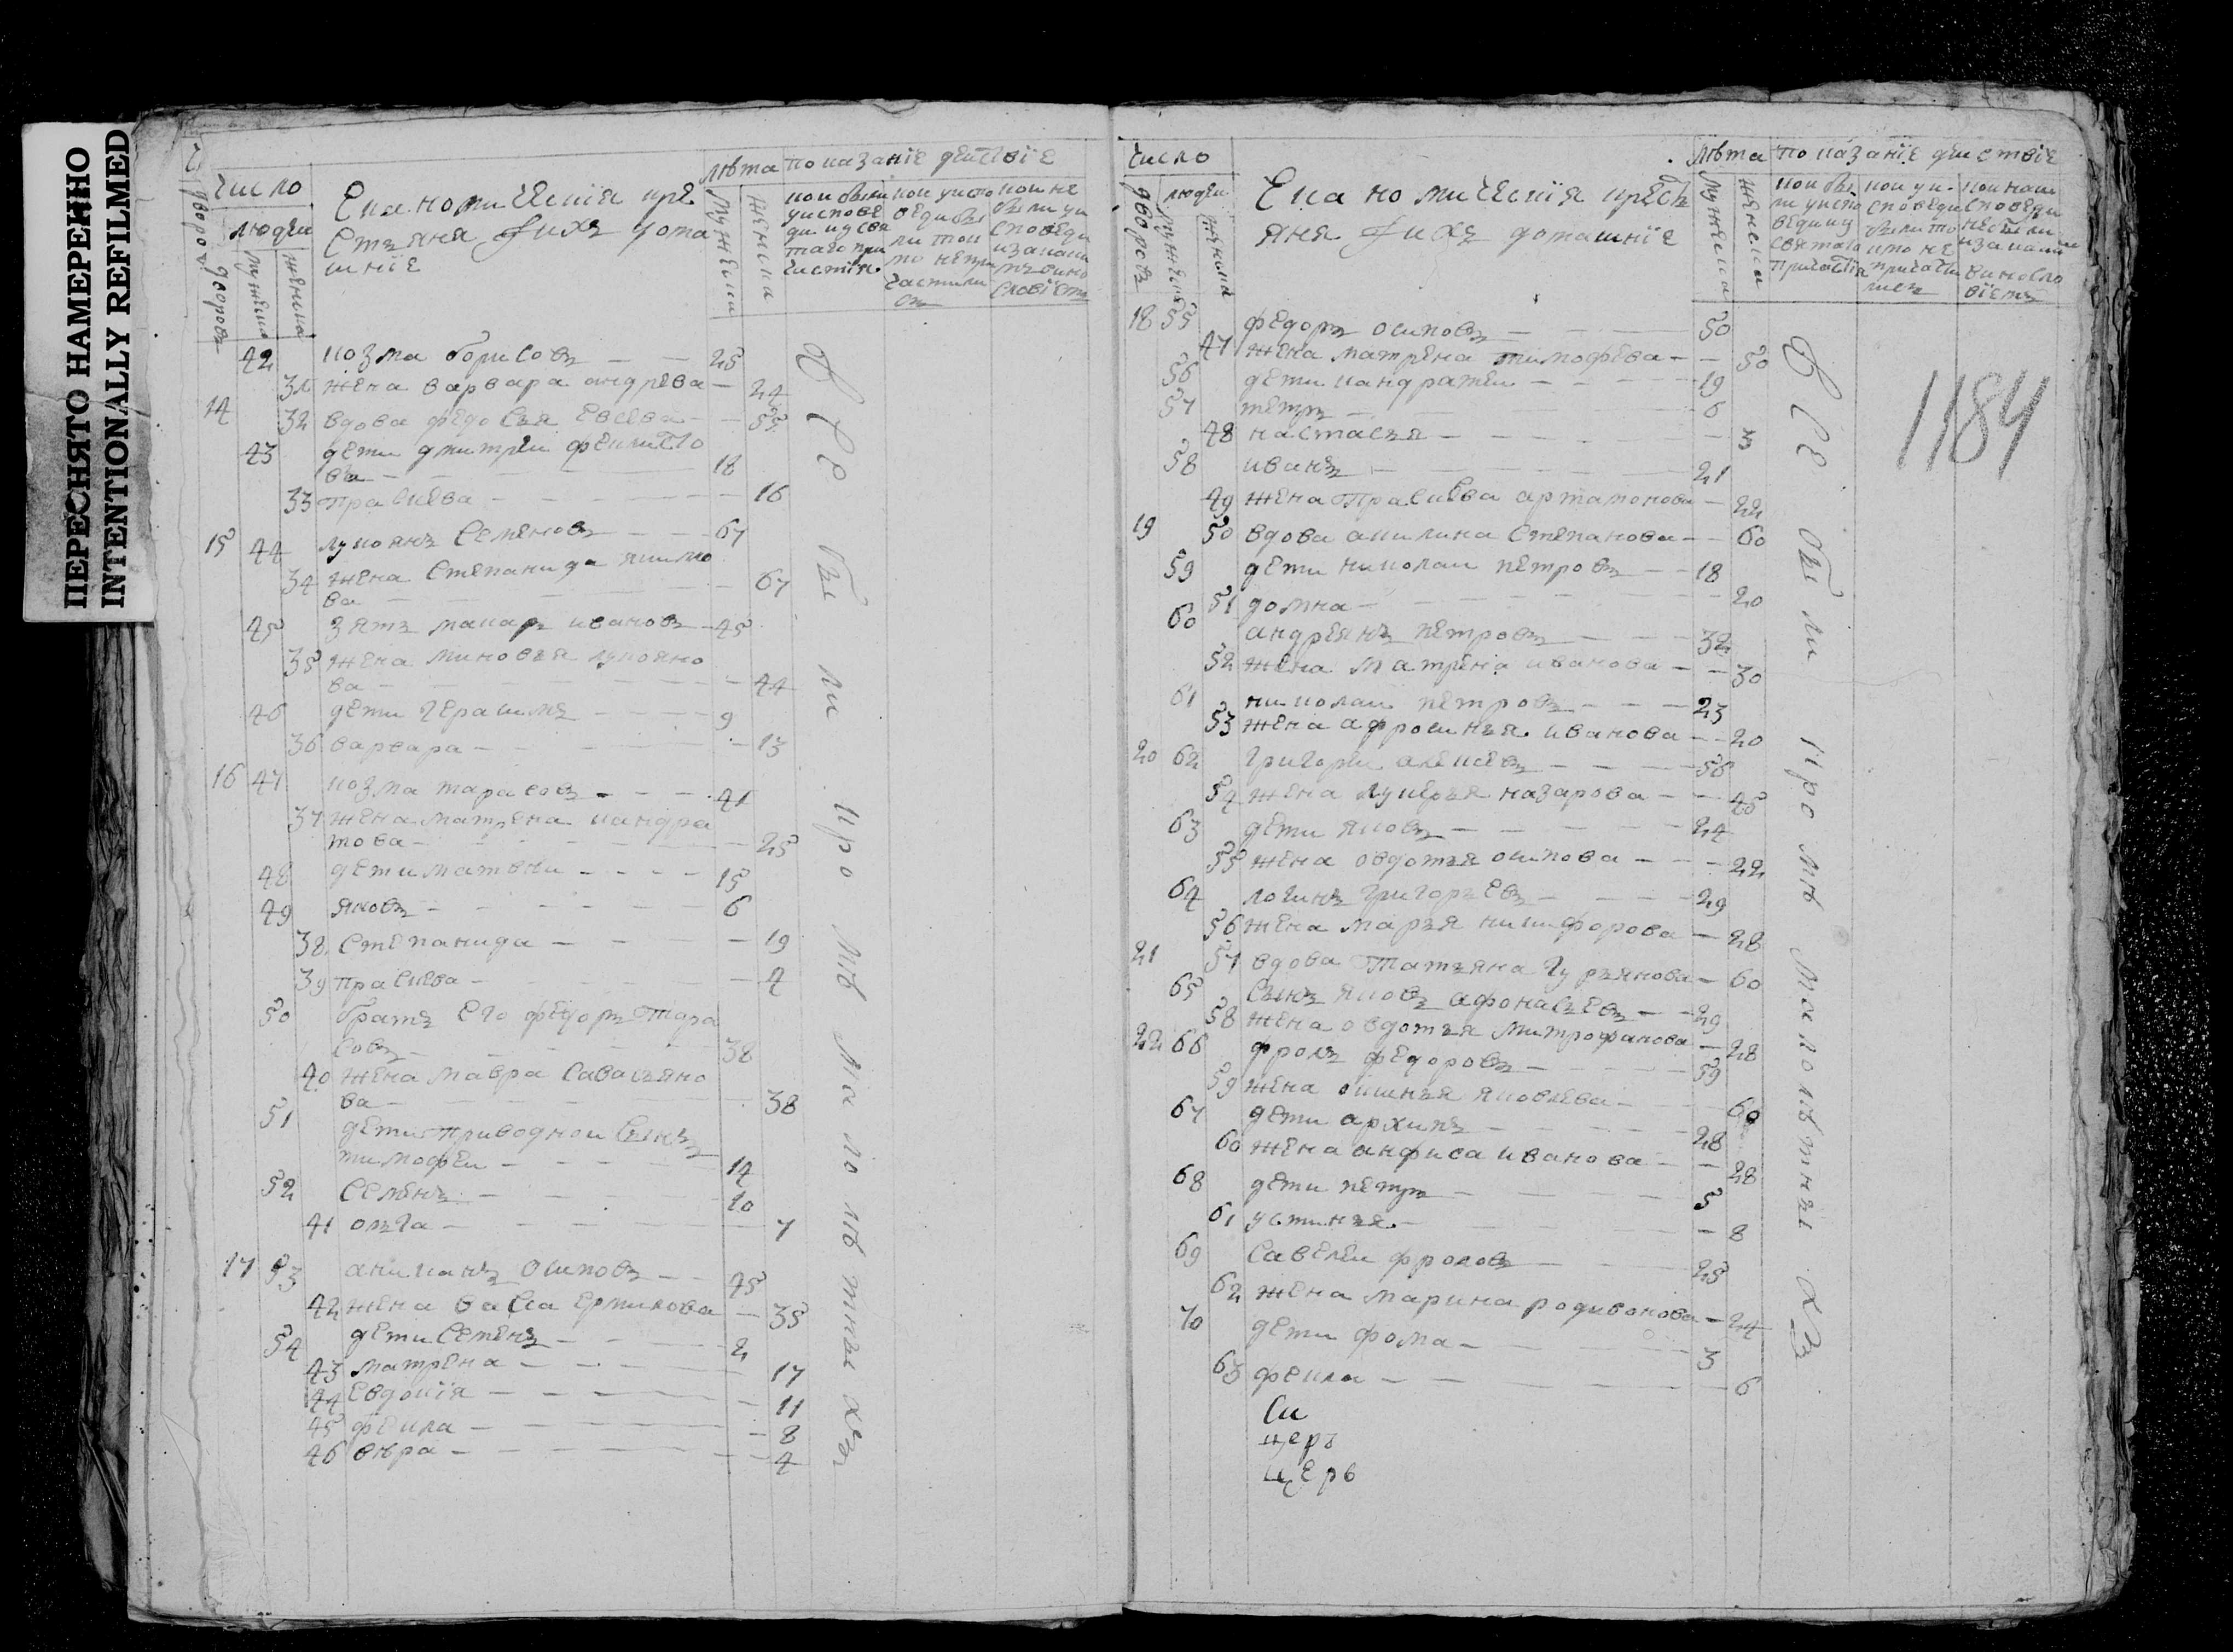 ПЕРЕСНЯТО НАМЕРЕННО
INTENTIONALLY REFILMED
число
лѣта показанїе деиствїе
люди
дворовъ
мужеска
женска
Економическїя кре
стьяня ихъ дома
шнїе
мужеска
женска
кои были
у испове
ди и у свя
таго при
частїя
кои у испо
веди бы
ли токи
мо непри
частили
сь
кои не
были у и
споведи
42 козма борисовъ — — 25
31 жена варвара андрева — 24
14 32 вдова федосья евсева — 55
43 дети дмитреи феклисто
ва — 18
33 праскева — 16
15 44 лукоянъ семеновъ — 67
34 жена степанида якимо
ва — 67
45 зять макаръ ивановъ — 45
35 жена миновья лукояно
ва — 44
46 дети герасимъ — 9
36 варвара — 13
16 47 козма тарасовъ — 41
37 жена матрена кандра
това — 25
48 дети матвеи — 15
49 яковъ — 6
38 степанида — 19
39 праскева — 4
50 братъ его федоръ тара
совъ — 38
40 жена мавра савасьяно
ва — 38
51 дети приводнои сынъ
тимофеи — 14
52 семенъ — 10
41 ольга — 7
17 53 аниканъ осиповъ — 45
42 жена васса ермилова — 35
54 дети семенъ — 2
43 матрена — 17
44 евдокїя — 11
45 фекла — 8
46 вѣра — 4
все были кромѣ малолѣтныхъ
число
лѣта показанїе деиствїе
дворовъ
люди
мужеска
женска
Економическїя кресть
яня ихъ домашнїе
мужеска
женска
кои бы
ли у испо
веди и у
святаго
причастїя
кои у и
споведи
были то
кмо не
причасти
лись
1184
18 55 федоръ осиповъ — 50
47 жена матрена тимофева — 50
56 дети кандратеи — 19
57 петръ — 6
48 настасья — 3
58 иванъ — 21
49 жена праскева артамонова — 22
19 50 вдова акилина степанова — 60
59 дети николаи петровъ — 18
51 домна — 20
60 андреянъ петровъ — 32
52 жена матрена иванова — 30
61 николаи петровъ — 23
53 жена афросинья иванова — 20
20 62 григореи алексевъ — 56
54 жена лукерья назарова — 45
63 дети яковъ — 24
55 жена овдотья осипова — 22
64 логинъ григорьевъ — 29
56 жена марья никифорова — 28
21 57 вдова татьяна гурьянова — 60
65 сынъ яковъ афонасьевъ — 29
58 жена овдотья митрофанова — 28
22 66 фролъ федоровъ — 59
59 жена оксинья яковлева — 60
67 дети архипъ — 28
60 жена анфиса иванова — 28
68 дети петръ — 5
61 устинья — 8
69 савелеи фроловъ — 25
62 жена марина родивонова — 24
70 дети фома — 3
63 фекла — 6
все были кромѣ малолѣтныхъ